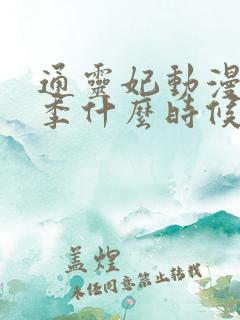 通靈妃動漫
季什麼時候
盖煌
未经同意禁止转载